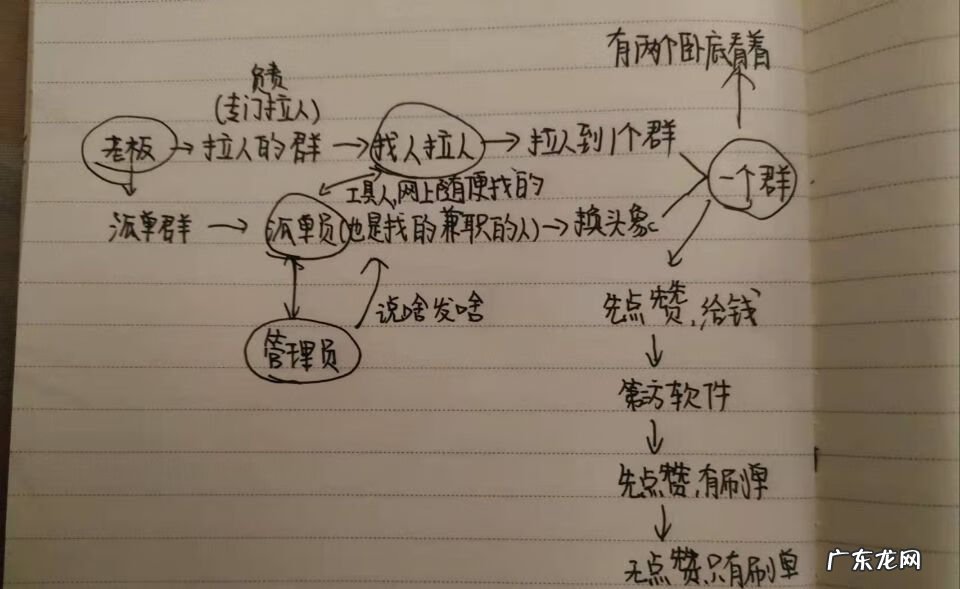 有两个卧底看着
负责
(专门拉人)
老板 → 拉人的群 → 找人拉人 → 拉人到1个群
一个群
工具人,网上随便找的
派单群 → 派单员(也是找的兼职的人) → 换头象
说啥发啥
先点赞,给钱
管理员
第三方软件
先点赞,有刷单
无点赞只有刷单
广东龙网